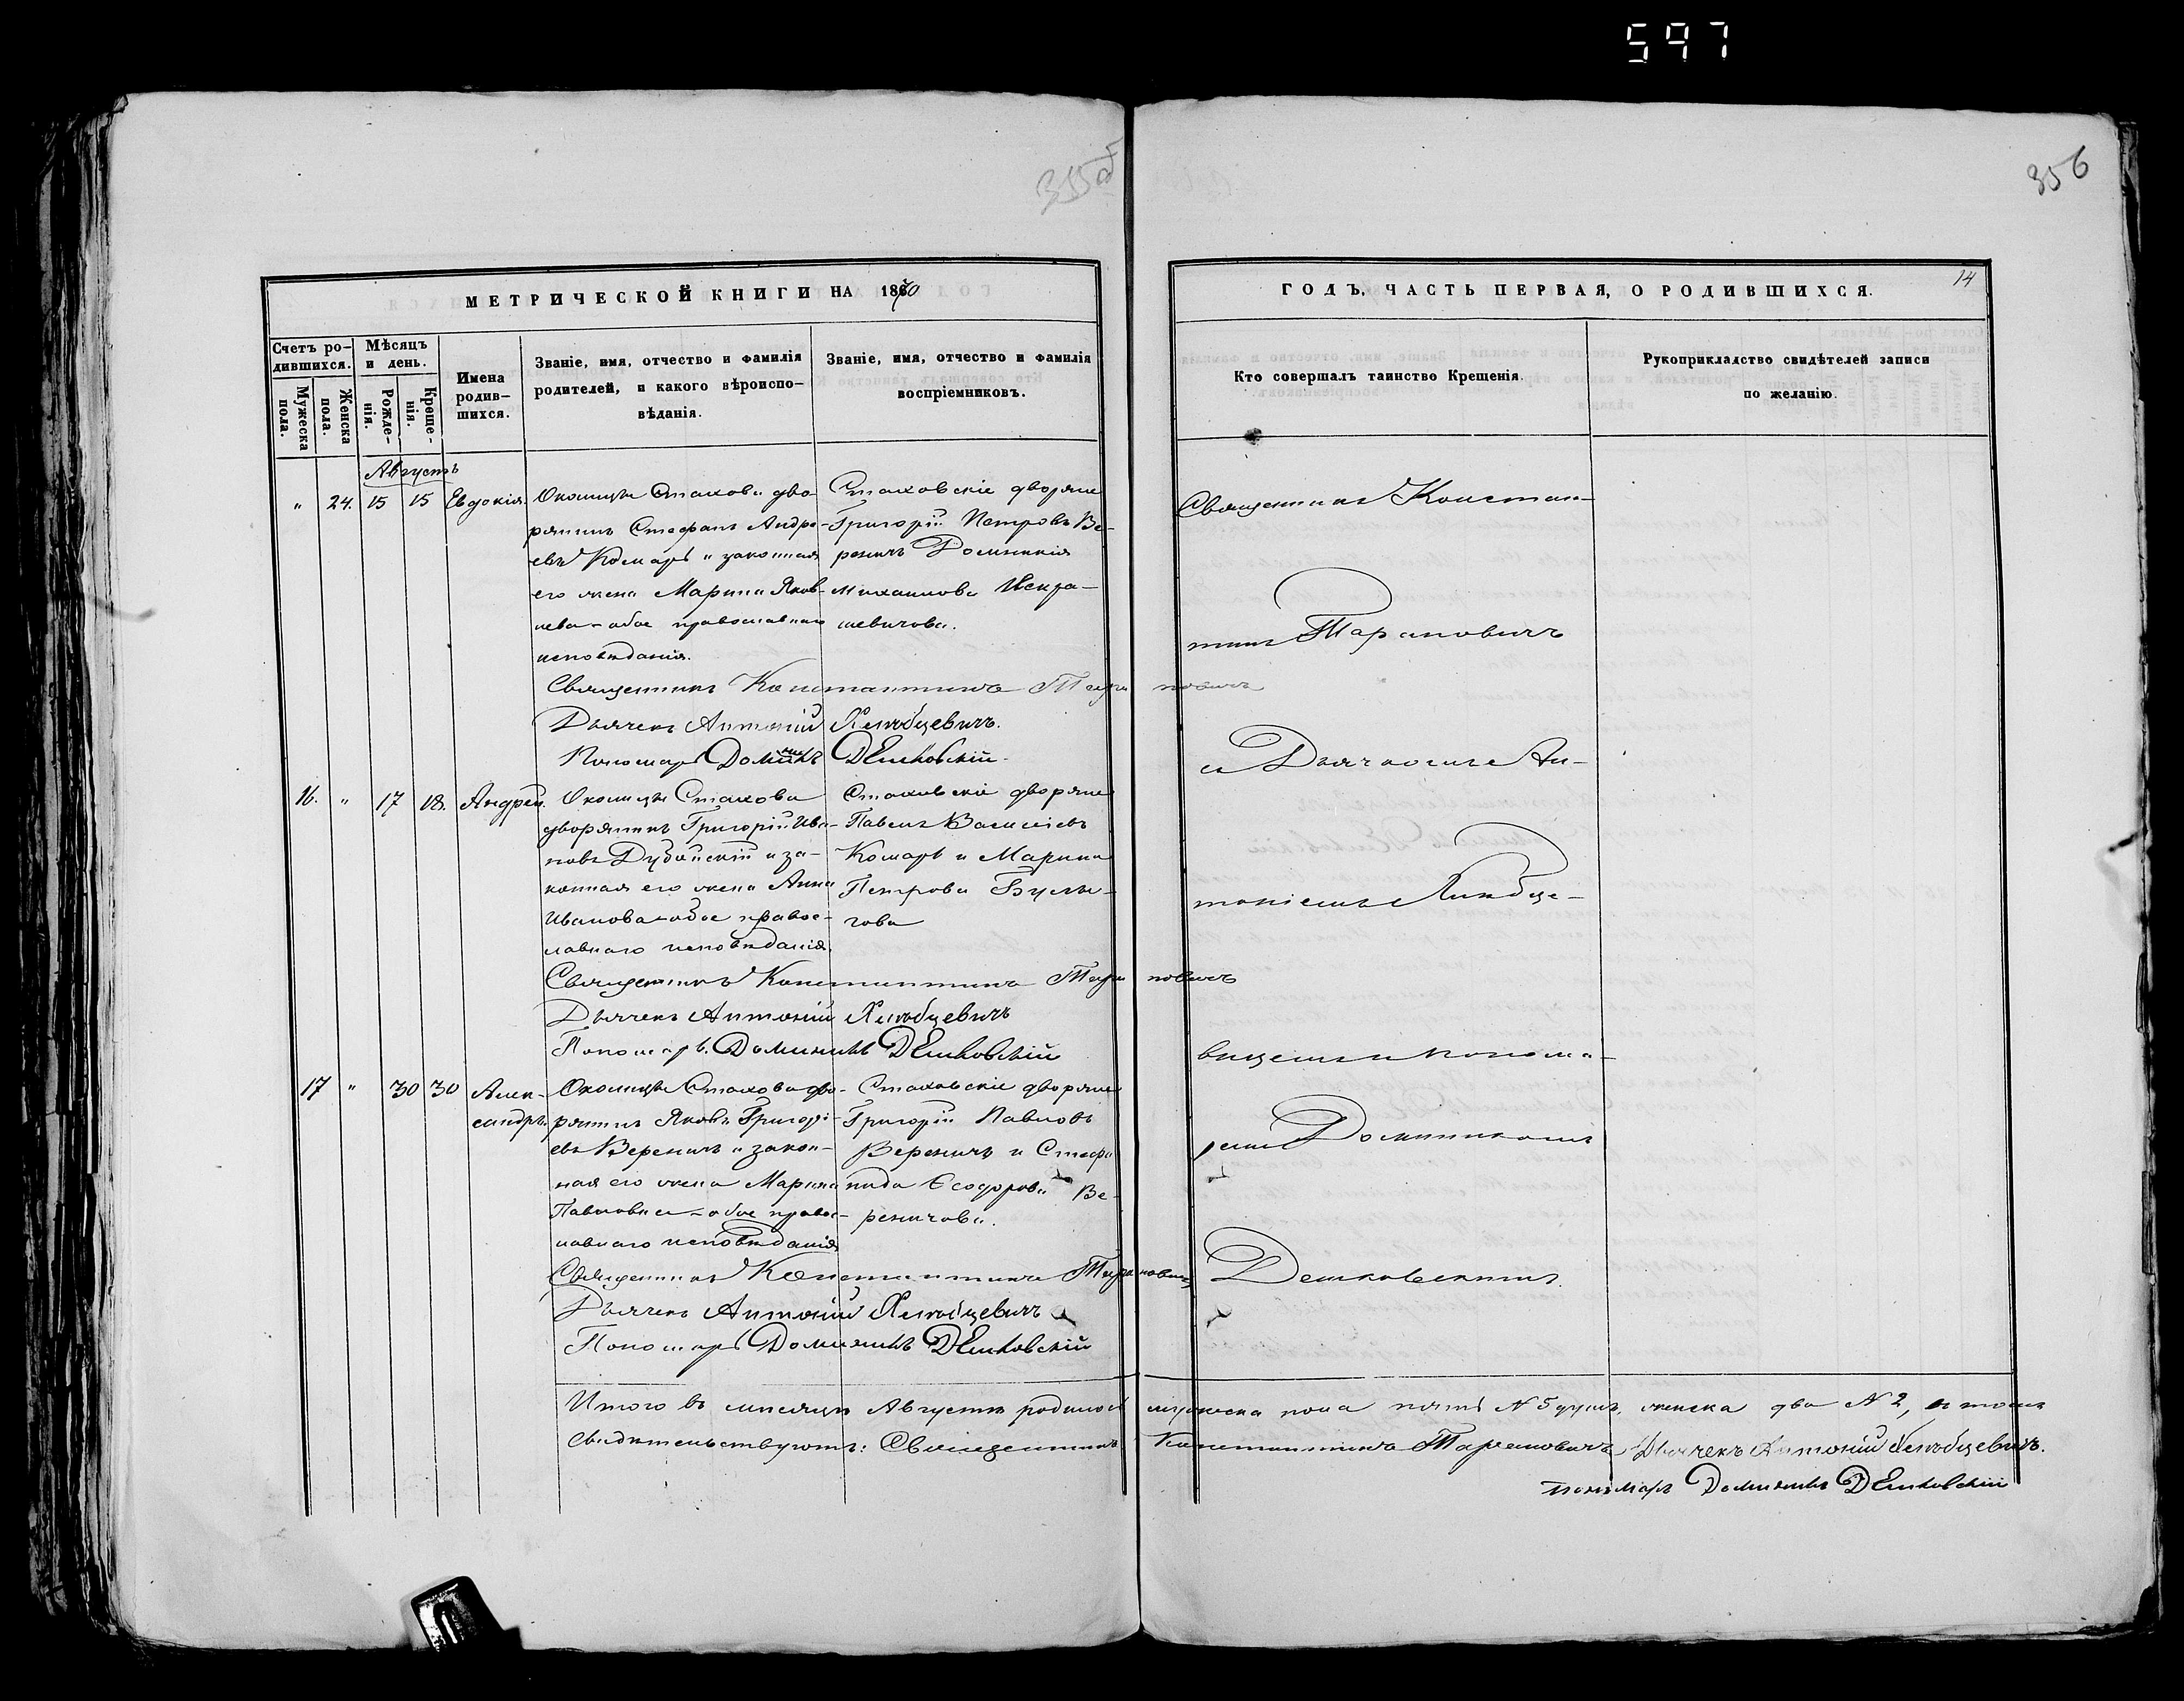 597
355об
356
МЕТРИЧЕСКОЙ КНИГИ НА 1870
ГОДЪ, ЧАСТЬ ПЕРВАЯ, О РОДИВШИХСЯ.
14
Счетъ ро-
дившихся.
Мужеска
пола.
Женска
пола.
Мѣсяцъ
и день.
Рожде-
нія.
Креще-
нія.
Имена
родив-
шихся.
Званіе, имя, отчество и фамилія
родителей, и какого вѣроиспо-
вѣданія.
Званіе, имя, отчество и фамилія
воспріемниковъ.
Кто совершалъ таинство Крещенія.
Рукоприкладство свидѣтелей записи
по желанію.
Августъ
" 24. 15 15 Евдокія.
Околицы Стахова дво-
рянинъ Стефанъ Андре-
евъ Комаръ и законная
его жена Марина Яков-
лева - обое православнаго
исповѣданія.
Стаховскіе дворяне
Григорій Петровъ Ве-
реничъ Домникія
Михаилова
шевичова.
Священникъ Константинъ Тарановичъ
Дьячекъ Антоній
Пономарь Доминикъ
16. " 17 18. Андрей.
Околицы Стахова
дворянинъ Григорій Ива-
новъ Дубойскій и за-
конная его жена Анна
Иванова - обое правос-
лавнаго исповѣданія.
Стаховскіе дворяне
Павелъ Василіевъ
Комаръ и Марина
Петрова Булы-
гова
Священникъ Константинъ Тарановичъ
Дьячекъ Антоній
Пономарь Доминикъ
17 " 30 30 Алек-
сандръ.
Околицы Стахова дво-
рянинъ Яковъ Григорі-
евъ Вереничъ и закон-
ная его жена Марина
Павловна - обое правос-
лавнаго исповѣданія
Стаховскіе дворяне
Григорій Павловъ
Вереничъ и Стефа
нида Ѳеодорова Ве-
реничова.
Священникъ Константинъ Тарановичъ
Дьячекъ Антоній
Пономарь Доминикъ
Священникъ Констан-
тинъ Тарановичъ
съ Дьячкомъ Ан-
тоніемъ
вицемъ и понома-
ремъ Доминикомъ
Итого въ мѣсяцѣ Августѣ родилось мужеска пола пять N 5 душъ, женска два N 2, въ томъ
свидѣтельствуютъ: Священникъ Константинъ Тарановичъ Дьячекъ Антоній
пономарь Доминикъ